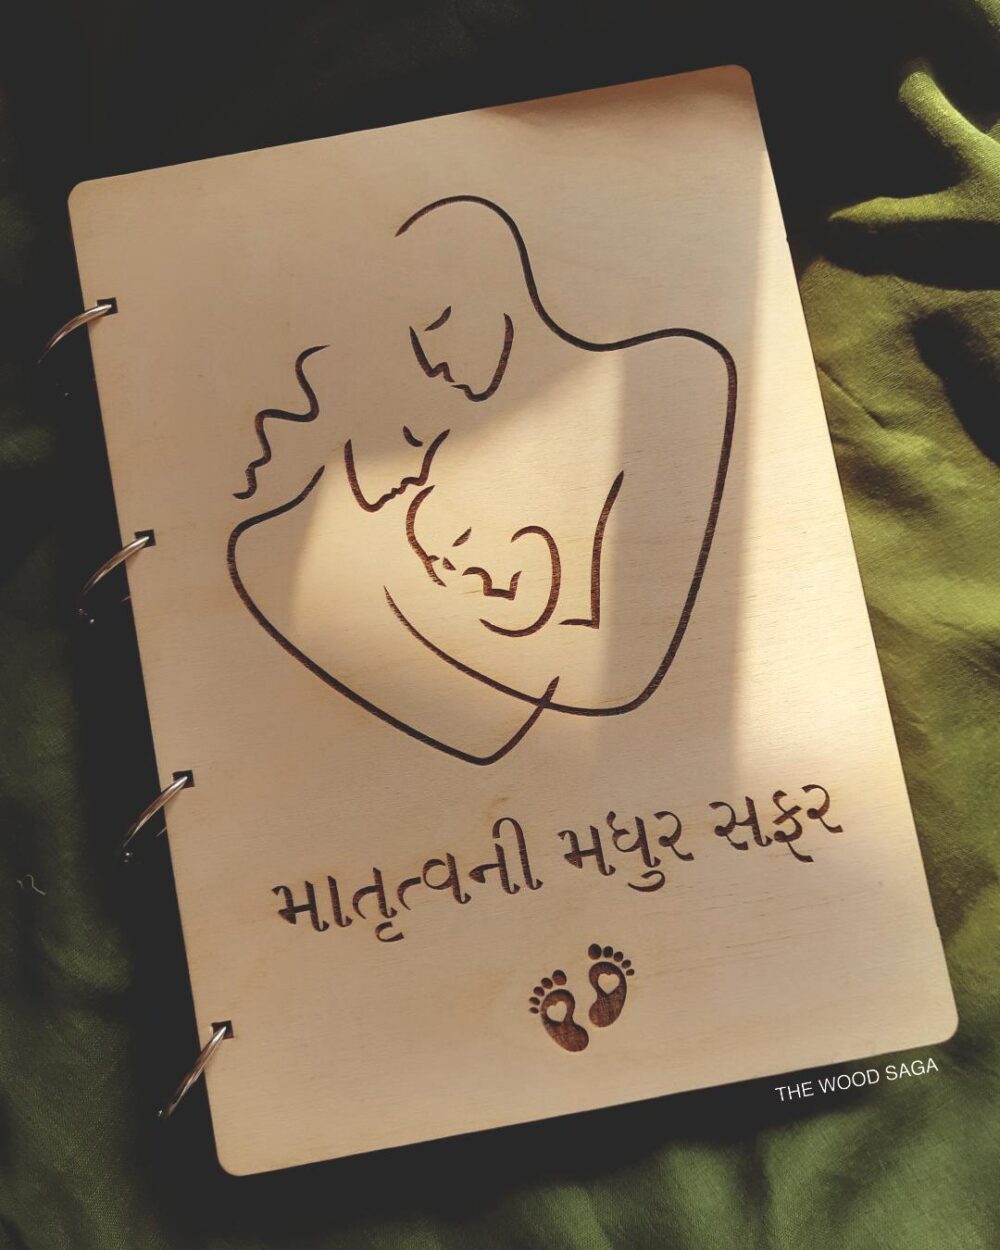 માતૃત્વની મધુર સફર
THE WOOD SAGA